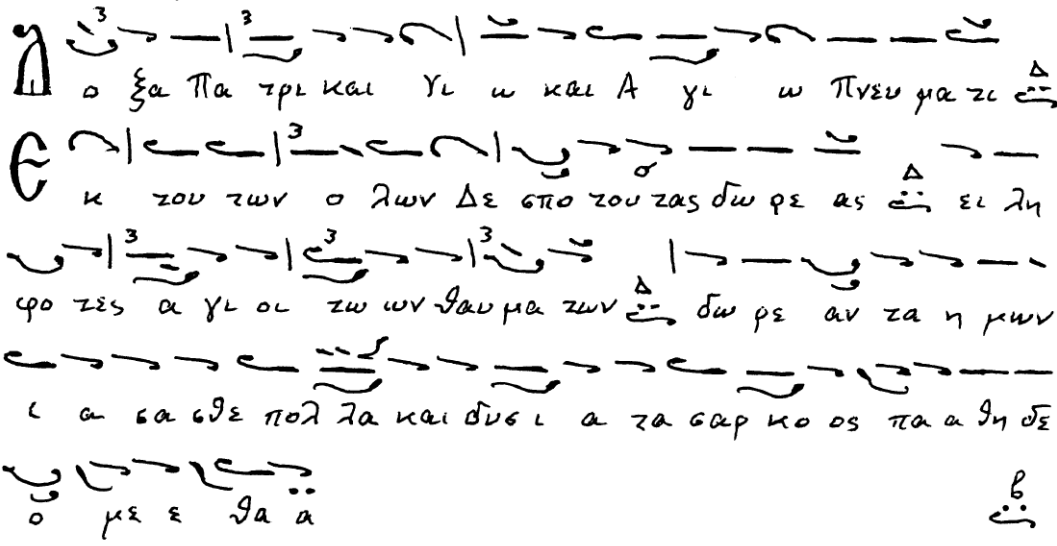 Δ ο ξα Πα τρι και Υι ω και Α γι ω Πνευ μα τι Δ
Ε κ του των ο λων Δε σπο του τας δω ρε ας Δ ει λη
φο τες α γι οι τω ων θαυ μα των Δ δω ρε αν τα η μων
ι α σα σθε πολ λα και δυσ ι α τα σαρ κο ος πα α θη δε
ο με ε θα α β